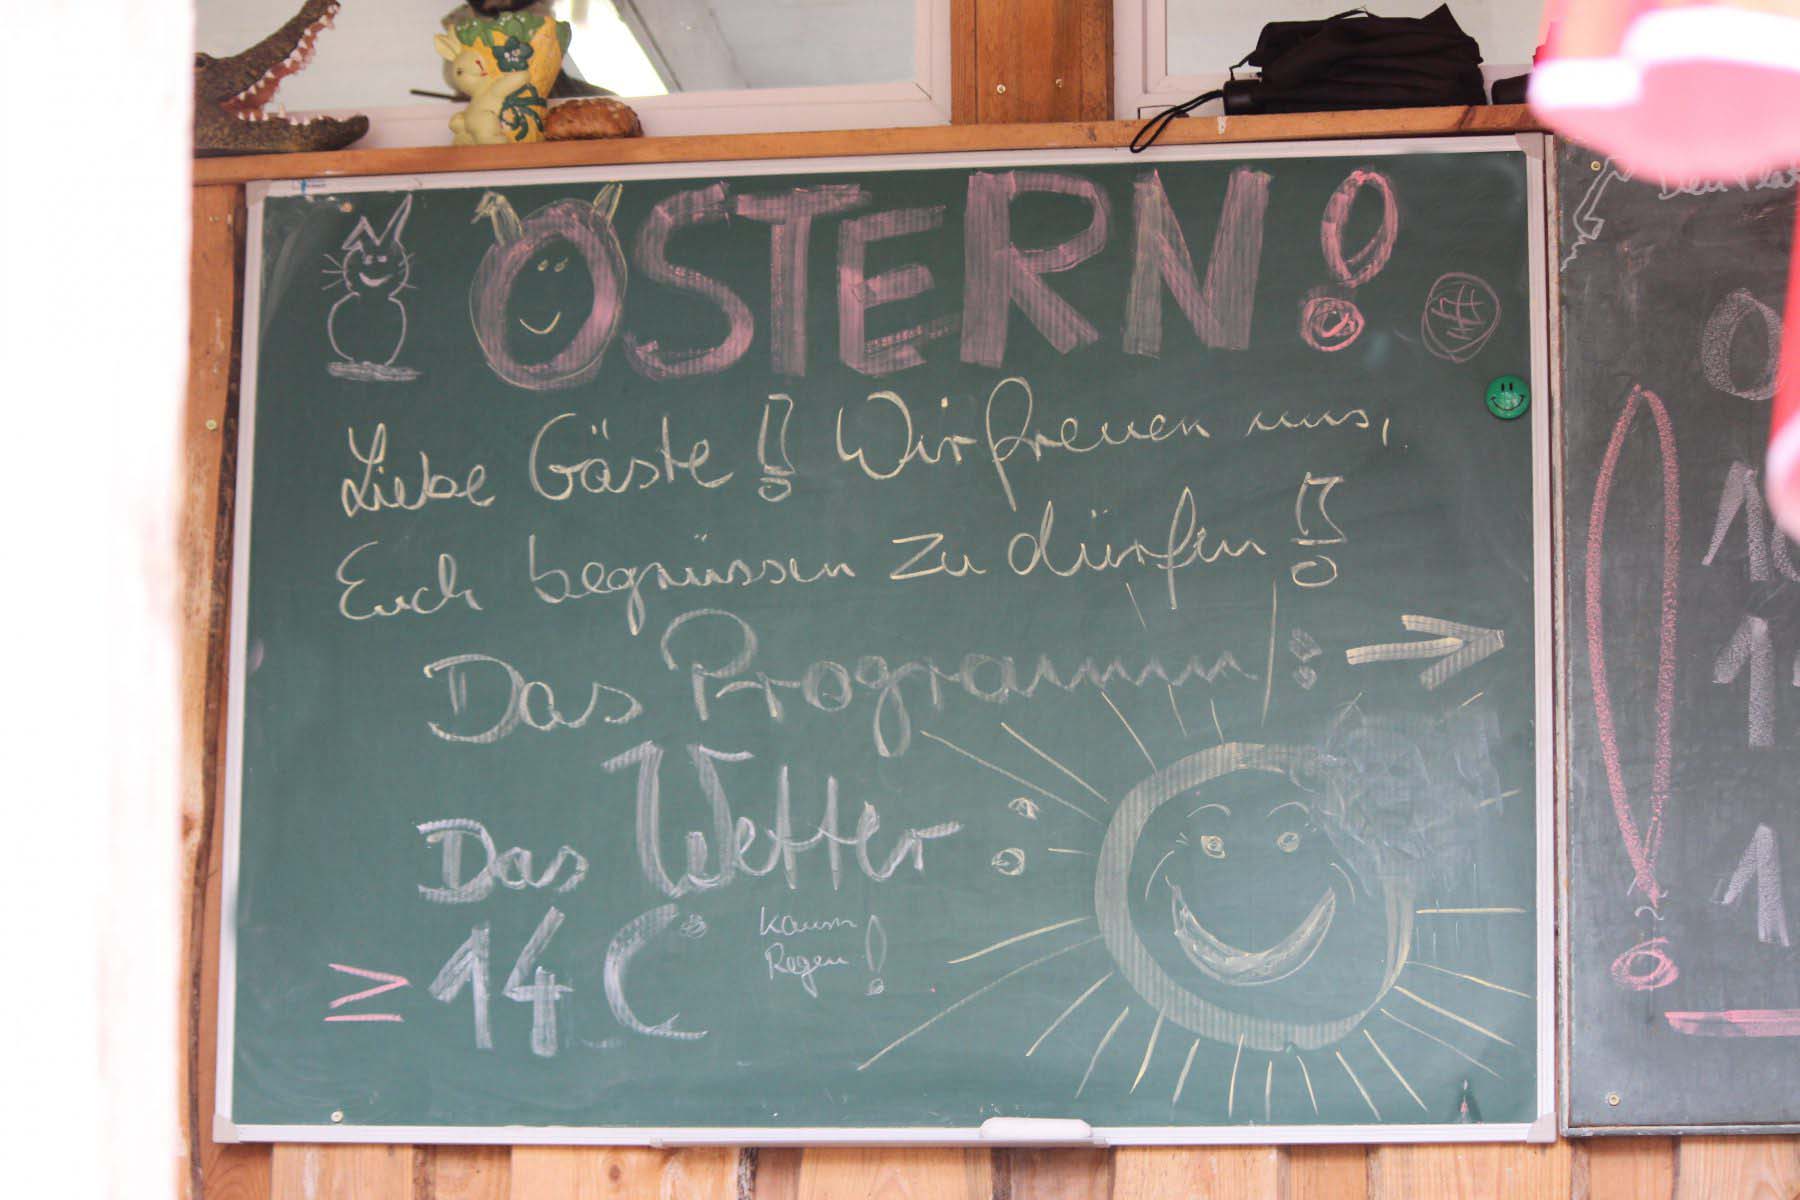 OSTERN!
Liebe Gäste! Wir freuen uns,
Euch begrüssen zu dürfen!
Das Programm: →
Das Wetter:
≥ 14 C°
kaum
Regen!